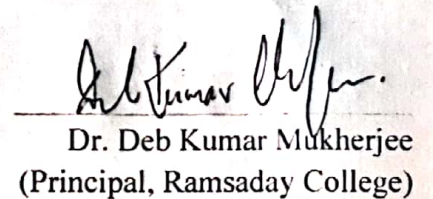 Deb Kumar
Dr. Deb Kumar Mukherjee
(Principal, Ramsaday College)